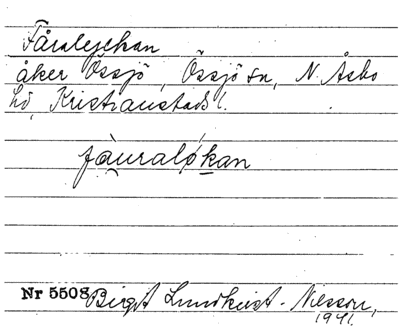 Fåralyckan
åker Össjö, Össjö sn, N. Åsbo
hd, Kristianstads l.
fàuraløkan
Nr 5508 Birgit Lundkvist-Nilsson,
1941.